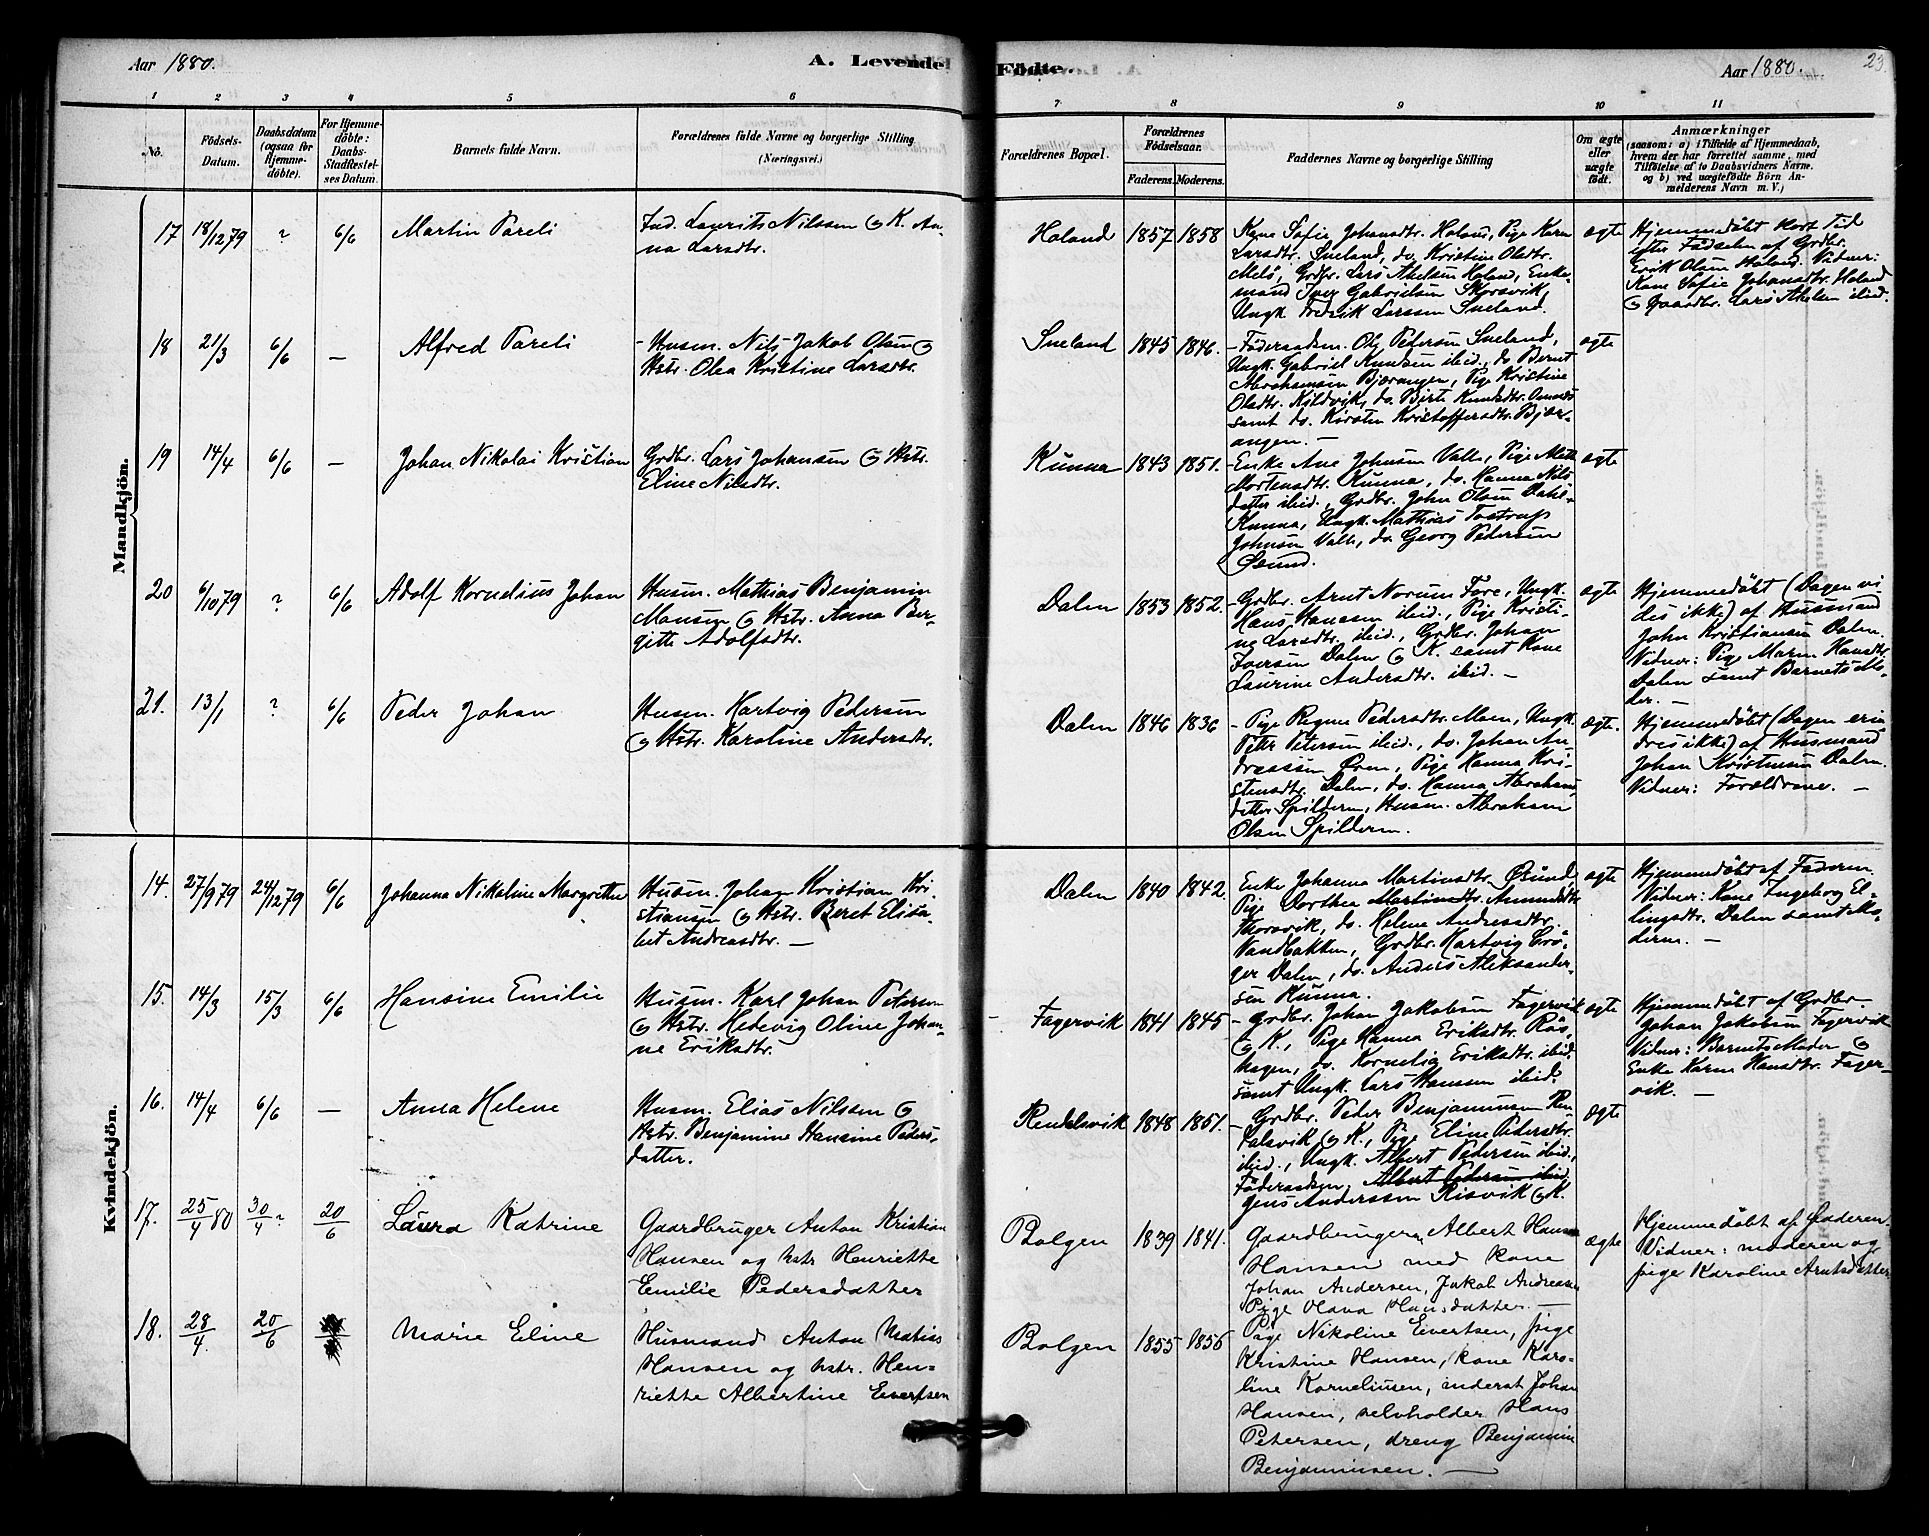 Aar 1880.
A. Levende
Fødte.
Aar 1880.
23.
1 2 3 4 5 6 7 8 9 10 11
No.
Fødsels-
Datum.
Daabsdatum
(ogsaa for
Hjemme-
døbte).
For Hjemme-
døbte:
Daabs-
Stadfæstel-
ses Datum.
Barnets fulde Navn.
Forældrenes fulde Navne og borgerlige Stilling
(Næringsvei.)
Forældrenes Bopæl.
Forældrenes
Fødselsaar.
Faderens. Moderens.
Faddernes Navne og borgerlige Stilling
Om ægte
eller
uægte
født.
Anmærkninger
(saasom: a) i Tilfælde af Hjemmedaab,
hvem der har forrettet samme, med
Tilføielse af to Daabsvidners Navne,
og b) ved uægtefødte Børn An-
melderens Navn m. V.)
Mandkjön.
17 18/12 79 ? 6/6 Martin Pareli
Ind. Laurits Nilssen & K. An-
na Larsdtr.
Haland 1857 1858
Kone Sofie Johansdtr. Haland, Pige Karn
Larsdtr. Sneland, do. Kristine Olsdtr.
Melö, Grdbr. Lars Abelsen Haland, Enke-
mand Iver Gabrielsen Skarsvik,
Ungk. Fredrik Larssen Sneland.
ægte
Hjemmedøbt kort Tid
efter Fødselen af Grdbr.
Erik Olsen Haland. Vidner:
Kone Sofie Johansdtr. Haland
& Gaardbr. Lars Abelsen ibid.
18 21/3 6/6 — Alfred Pareli
Husm. Nils Jakob Olsen &
Hstr. Olea Kristine Larsdtr.
Sneland 1845 1846.
Föderaadsm. Ole Pedersen Sneland,
Ungk. Gabriel Knudsen ibid., do Bernt
Abrahamsen Bjærangen, Pige Kristine
Olsdtr. Kildvik, do. Birte Knudsdtr. Omnes
samt do. Kirsten Kristoffersdtr. Bjær-
angen. —
ægte
19 14/4 6/6 — Johan Nikolai Kristian
Grdbr. Lars Johansen & Hstr.
Eline Nilsdtr.
Kunna 1843 1851.
Enke Ane Johnsen Valle, Pige Mette
Mortensdtr. Kunna, do. Hanna Nils-
datter ibid., Grdbr. John Olsen Dahl-
Kunna, Ungk. Mathias Tostrup
Johnsen Valle, do. Georg Pedersen
Øsund.
ægte
20 6/10 79 ? 6/6 Adolf Kornelius Johan
Husm. Mathias Benjamin
Monsen & Hstr. Anna Ber-
gitte Adolfsdtr.
Dalen 1853 1852.
Grdbr. Arnt Norum Fore, Ungk.
Hans Hansen ibid., Pige Kristi-
ne Larsdtr. ibid., Grdbr. Johan
Iversen Dalen & K. samt Kone
Laurine Andersdtr. ibid. —
ægte
Hjemmedøbt (Dagen vi-
des ikke) af Husmand
John Kristiansen Dalen.
Vidner: Pige Maren Hansdtr.
Dalen samt Barnets Mo-
der. —
21. 13/1 ? 6/6 Peder Johan
Husm. Hartvig Pedersen
& Hstr. Karoline Andersdtr.
Dalen 1846 1836
Pige Regine Pedersdtr. Moen, Ungk.
Peter Petersen ibid., do. Johan An-
dreassen Øren, Pige Hanna Kri-
stensdtr. Dalen, do. Hanna Abrahams-
datter Spilderen, Husm. Abraham
Olsen Spilderen.
ægte.
Hjemmedøbt (Dagen erin-
dres ikke) af Husmand
Johan Kristensen Dalen.
Vidner: Forældrene. —
Kvindekjön.
14. 27/9 79 24/12 79 6/6 Johanna Nikoline Margrethe
Husm. Johan Kristian Kri-
stiansen & Hstr. Beret Elisa-
bet Andreasdtr. —
Dalen 1840 1842.
Enke Johanna Martinsdtr. Øsund,
Pige Dorthea Martinsdtr. Amundsdtr.
Thorsvik, do. Helene Andreasdtr.
Vandbakken, Grdbr. Hartvig Crö-
ger Dalen, do. Anders Aleksander-
sen Kunna.
ægte
Hjemmedøbt af Faderen.
Vidner: Kone Ingeborg El-
lingsdtr. Dalen samt Mo-
deren. —
15. 14/3 15/3 6/6 Hansine Emilie
Husm. Karl Johan Petersen
& Hstr. Hedevig Oline Johan-
ne Eriksdtr.
Fagervik 1841 1845
Grdbr. Johan Jakobsen Fagervik
& K., Pige Hanna Eriksdtr. Rös-
hagen, do. Kornelia Eriksdtr. ibid.
samt Ungk. Lars Hansen ibid.
ægte
Hjemmedøbt af Grdbr.
Johan Jakobsen Fagervik
Vidner: Barnets Moder &
Enke Karen Hansdtr. Fager-
vik. —
16. 14/4 6/6 — Anna Helene
Husm. Elias Nilssen &
Hstr. Benjamine Hansine Peders-
datter.
Rendalsvik 1848 1851.
Grdbr. Peder Benjaminsen Ren-
dalsvik & K., Pige Eline Pedersdtr.
ibid., Ungk. Albert Pedersen ibid.,
Föderaadsm. Albert Pedersen ibid.
Jens Anderssen Risvik & K.
Ægte
17. 25/4 80 30/4 ? 20/6 Laura Katrine
Gaardbruger Anton Kristian
Hansen og hstr Henriette
Emilie Pedersdatter
Bolgen 1839 1841.
Gaardbruger Albert Hans
Hansen med kone
Johan Andersen, Jakob Andreasen
Pige Hava Hansdatter. —
ægte
Hjemmedøbt af Faderen.
Vidner: moderen og
pige Karoline Arntsdatter
18. 28/4. 20/6 Marie Eline
Husmand Anton Matias
Hansen og hstr. Hen-
riette Albertine Evertsen
Bolgen 1855 1856
Pige Nikoline Eivertsen, pige
Kristine Hansen, kone Karo-
line Korneliusen, inderst Johan
Hansen, selvholder Hans
Petersen, dreng Benjamin
Benjaminsen. —